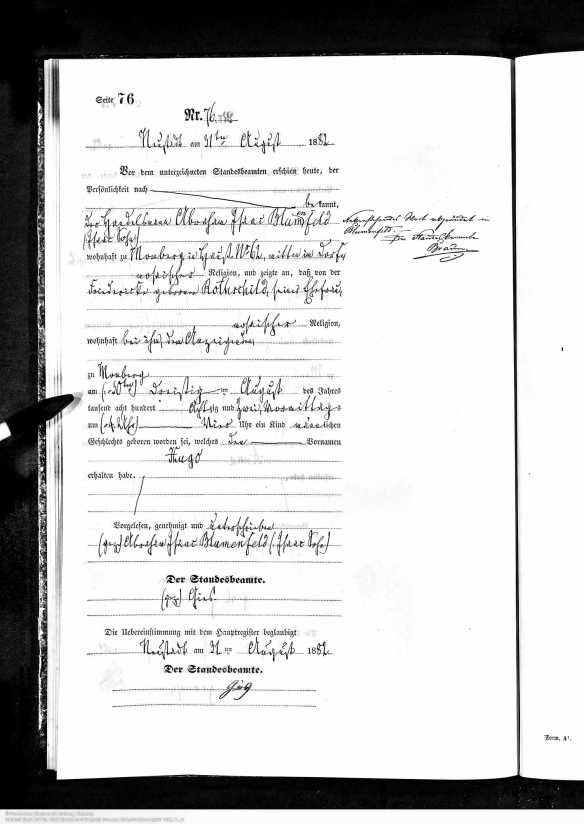 Seite 76
Nr. 76.
Neustadt am 31ten August 1882
Vor dem unterzeichneten Standesbeamten erschien heute, der
Persönlichkeit nach
bekannt,
der Handelsmann Abraham Isaac Blumenfeld
(Isaac Sohn)
wohnhaft zu Momberg in Haus No 62, mitten im Dorfe,
mosaischer Religion, und zeigte an, daß von der
Friedericke geborenen Rothschild, seiner Ehefrau,
mosaischer Religion,
wohnhaft bei ihm, dem Anzeigenden
zu Momberg
am (30ten) Dreißigten August des Jahres
tausend acht hundert Achtzig und zwei, Vormittags
um (4 Uhr) Vier Uhr ein Kind männlichen
Geschlechts geboren worden sei, welches den Vornamen
Hugo
erhalten habe.
Vorgelesen, genehmigt und unterschrieben
(gez) Abraham Isaac Blumenfeld (Isaac Sohn)
Der Standesbeamte.
(gez) Gies.
Die Uebereinstimmung mit dem Hauptregister beglaubigt
Neustadt am 31ten August 1882
Der Standesbeamte.
Gies
in
Blumenfeld.
Der Standesbeamte
Form. A¹.